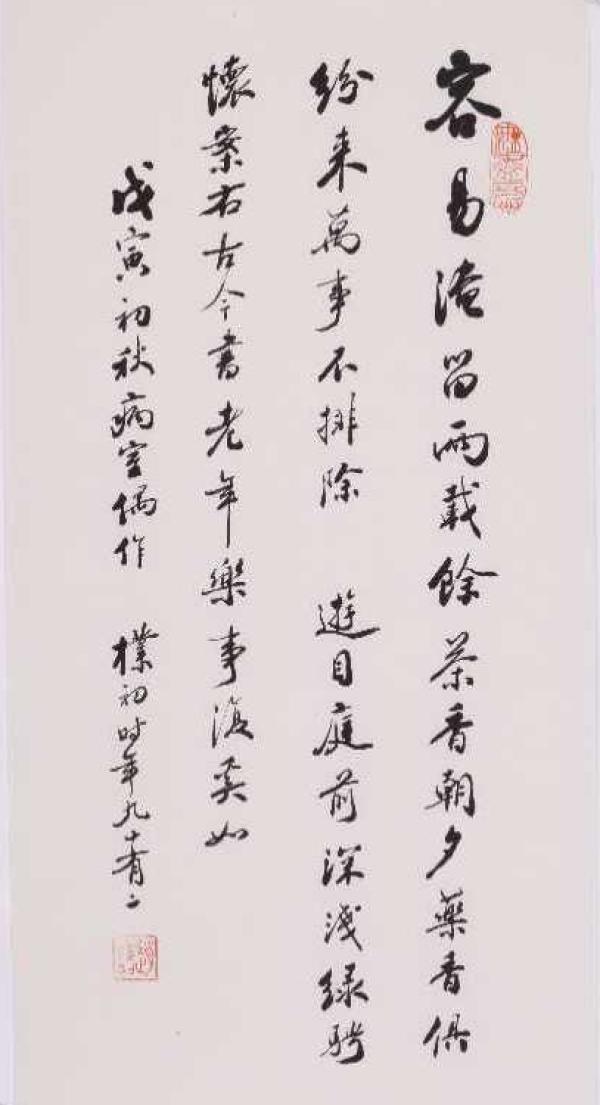 容易淹留兩載餘茶香朝夕藥香俱
紛来萬事不排除 遊目庭前深淺緑騁
懷案右古今書老年樂事復奚如
戊寅初秋病室偶作 樸初时年九十有二